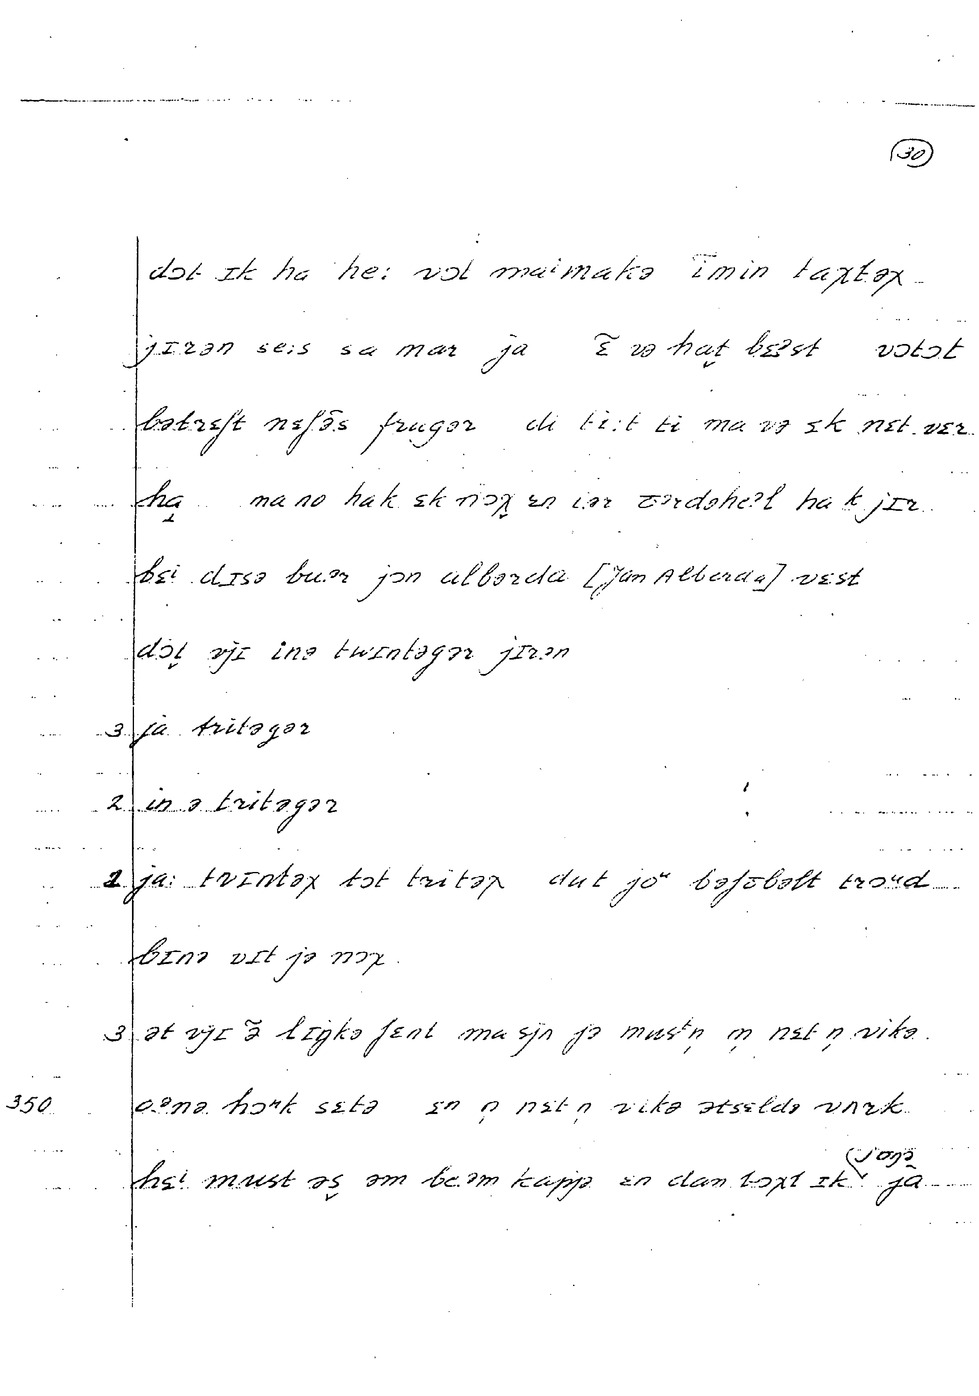 30
dɔt ɪk ha he: vɔl maⁱmakə ĩmin taχtəχ
jɪrən se:s sa mar ja ɛ̃ və hat̬ bɛəst vɔtɔt
bətrɛft nɛfə̃s frugər di ti:t ti ma və ɛk nɛt vɛr
ha ma no hak ɛk nɔχ̬ ɛn iər œrdəheəl ha k jɪr
bɛi dɪsə buər jɔn albərda [Jan Alberda] vɛst
dɔt̬ vjɪ inə twɪntəgər jɪrən
3 ja tritəgər
2 in ə tritəgər
2 ja: tvɪntəχ tɔt tritəχ dut joᵘ bəfōbəlt troᵘd
bɪnə vɪt jə nɔχ
3 ət vjɪ ə̃ lɪŋkə fɛnt ma sjn jə mustn̩ m̩ nɛt n̩ vikə
350 oənə hɔᵘk sɛtə ɛn n̩ nɛt n̩ vikə ətsɛldə vʌrk
hɛi must əs̬ əm beəm kapjə ɛn dan tɔχt ɪk (jɔŋə̄ ja